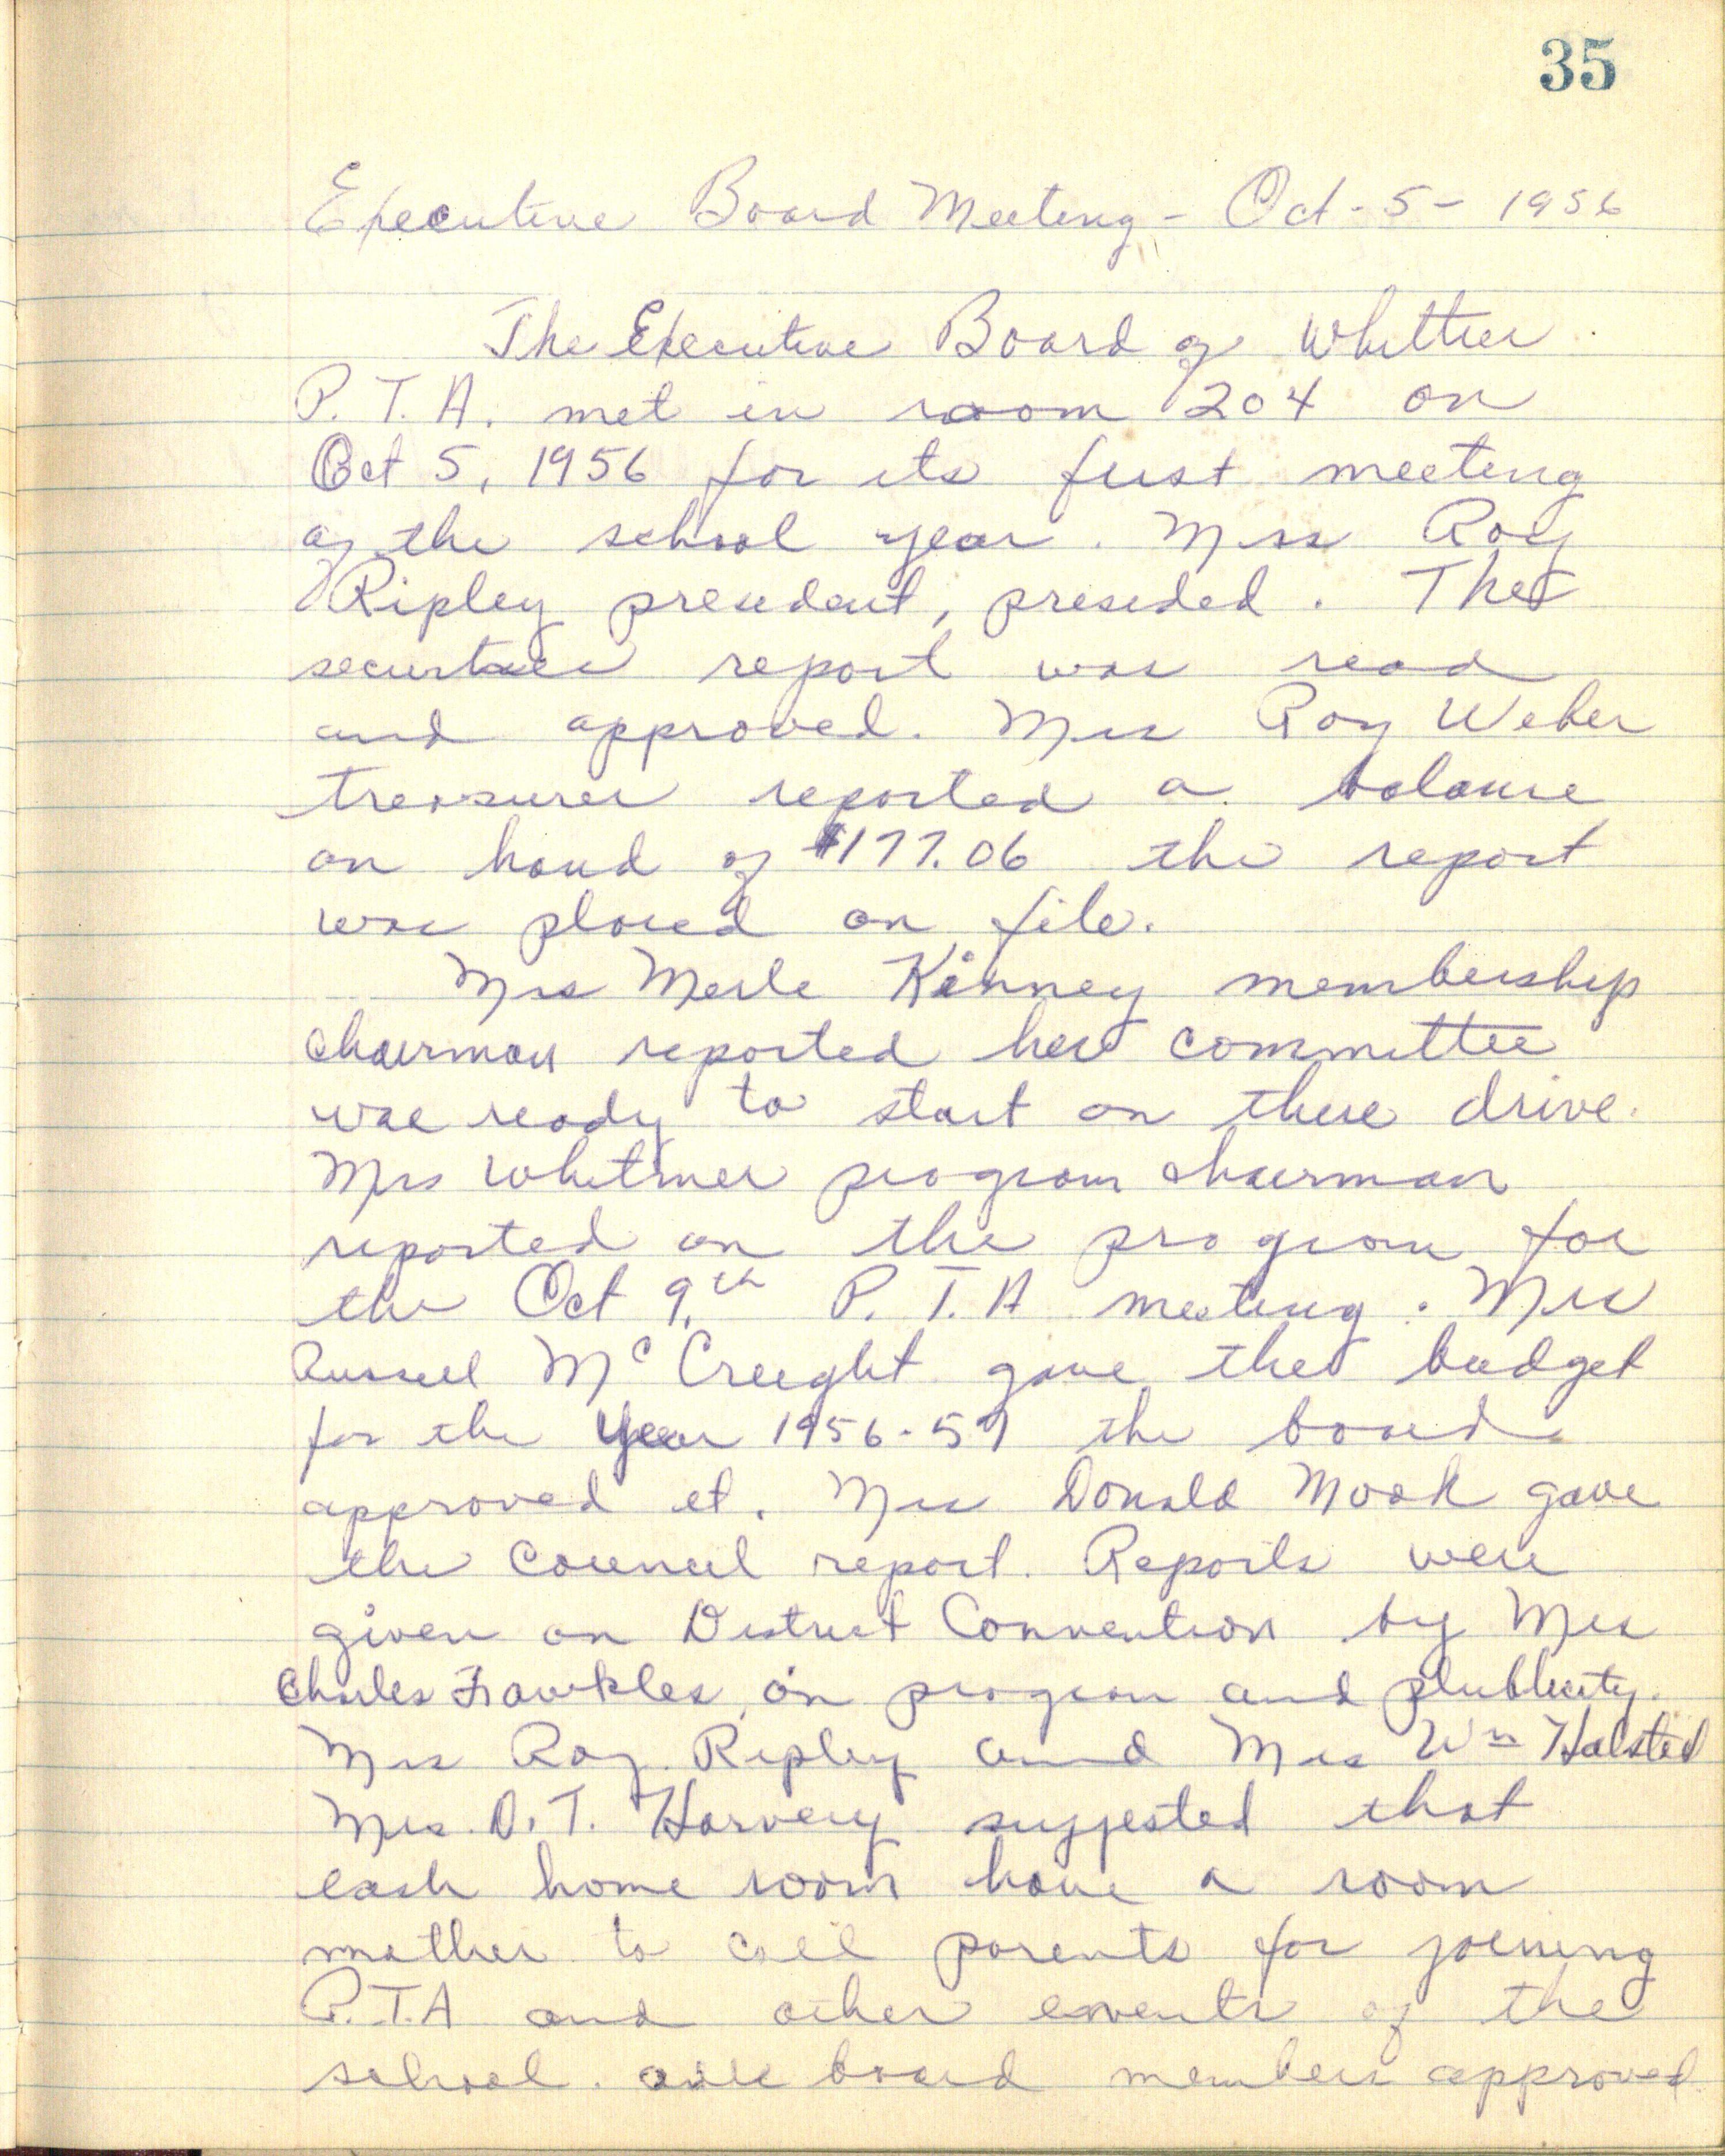 35
Executive Board Meeting - Oct - 5 - 1956
The Executive Board of Whittier
P. T. A. met in room 204 on
Oct 5, 1956 for its first meeting
of the school year. Mrs Roy
Ripley president, presided. The
report was read
and approved. Mrs Roy Weber
treasurer reported a balance
on hand of $177.06 the report
was placed on file.
Mrs Merle Kinney membership
chairman reported her committee
was ready to start on there drive.
Mrs Whitmer program chairman
reported on the program for
the Oct 9.th P. T. A meeting. Mrs
Russell McCreight gave the budget
for the year 1956-57 the board
approved it. Mrs Donald Mook gave
the Council report. Reports were
given on District Convention by Mrs
Charles on program and plublicity.
Mrs Roy Ripley and Mrs Wm Halsted
Mrs. D. T. Harvery suggested that
each home room have a room
mother to call parents for joining
P.T.A and other events of the
school. board members approved